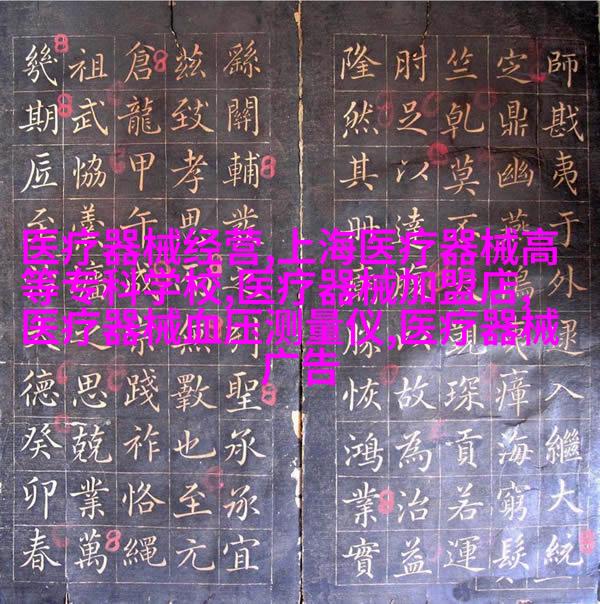 医疗器械经营,上海医疗器械高
等专科学校,医疗器械加盟店,
医疗器械血压测量仪,医疗器械
广告
師戡夷于外逮入繼大統
定鼎幽燕瘴海窮髮
竺乹莫不琛貢若運
肘足以達故為治益
隆然其恢鴻業實
繇關輔聖承承宜
茲致孝思無斁也至元
倉龍甲午踐祚恪繩
祖武協羹墻之思兢業萬
幾期至德癸卯春